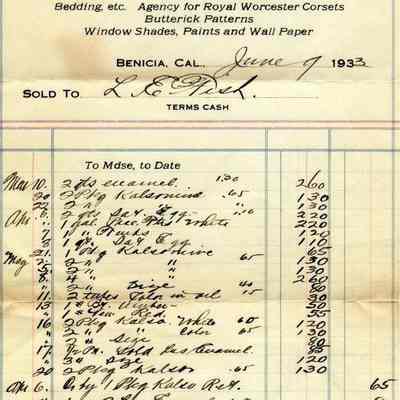 Bedding, etc. Agency for Royal Worcester Corsets
Butterick Patterns
Window Shades, Paints and Wall Paper
BENICIA, CAL. June 9 1933
SOLD TO L E Fish.
TERMS CASH
To Mdse, to Date
Mar 10. 2 qts enamel. 1.30 2 60
20 2 Pkg Kalsomine .65 1 30
22 2 " " 1 30
Apr 6. 2 qts Sat. Egg 1.10 2 20
1 gal. White 2 20
7 1 20
8 1 qt. Sat Egg 1 10
21. 1 Pkg Kalsomine 65
May 2. 2 " " 65 1 30
5. 2 " " 1 30
8 " " 2 60
2 " Size 40 80
11 2 tubes Color in oil 15 30
13 50
Red. 55
16 2 Pkg Kalso. White 60 1 20
2 " " Color 65 1 30
2 " Size 80
17. Gold Enamel.
3 " Size 1 20
20 2 Pkg Kalsom 65 1 30
Apr 6. Cr by 1 Pkg Kalso Ret. 65